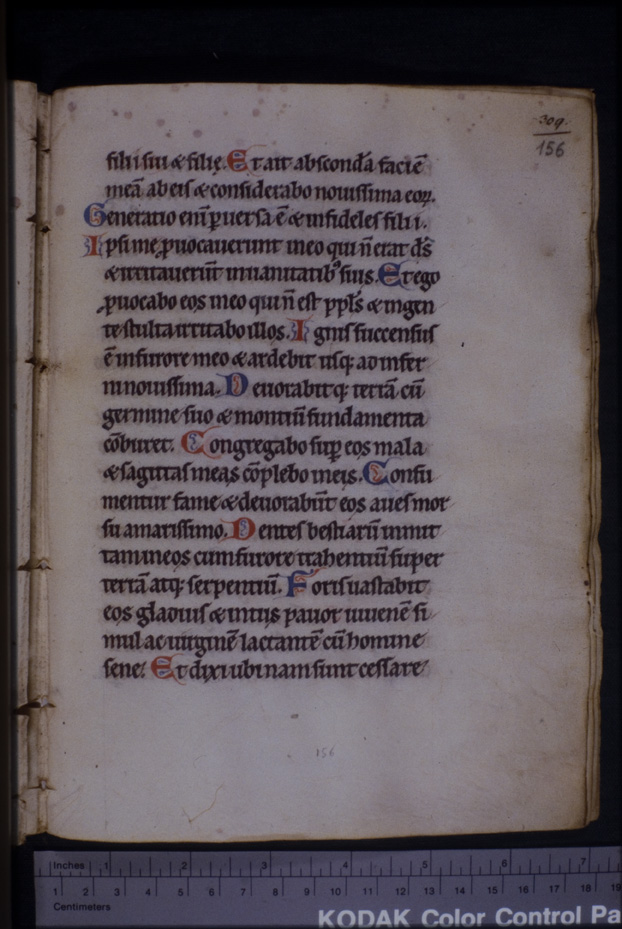 309.
156
filii sui & filię. Et ait abscondā faciē
meā ab eis & considerabo nouissima eoꝝ.
Generatio enī ꝑuersa ē & infideles filii.
Ipsi me ꝓuocauerunt in eo qui ñ erat d̄s
& irritauerūt in uanitatibꝰ suis. Et ego
ꝓuocabo eos in eo qui ñ est ppl̄s & in gen
te stulta irritabo illos. Ignis succensus
ē in furore meo & ardebit usq; ad infer
ni nouissima. Deuorabitq; terrā cū
germine suo & montiū fundamenta
cōburet. Congregabo suꝑ eos mala
& sagittas meas cōplebo in eis. Consu
mentur fame & deuorabūt eos aues mor
su amarissimo. Dentes bestiarū inmit
tam in eos cum furore trahentiū super
terrā atq; serpentiū. Foris uastabit
eos gladius & intus pauor iuuenē si
mul ac uirginē lactantē cū homine
sene. Et dixi ubi nam sunt cessare
156
Inches 1 2 3 4 5 6 7
1 2 3 4 5 6 7 8 9 10 11 12 13 14 15 16 17 18 19
Centimeters
KODAK Color Control Pa